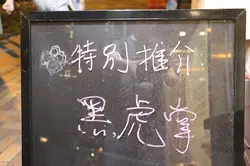 特別推介
黑虎掌